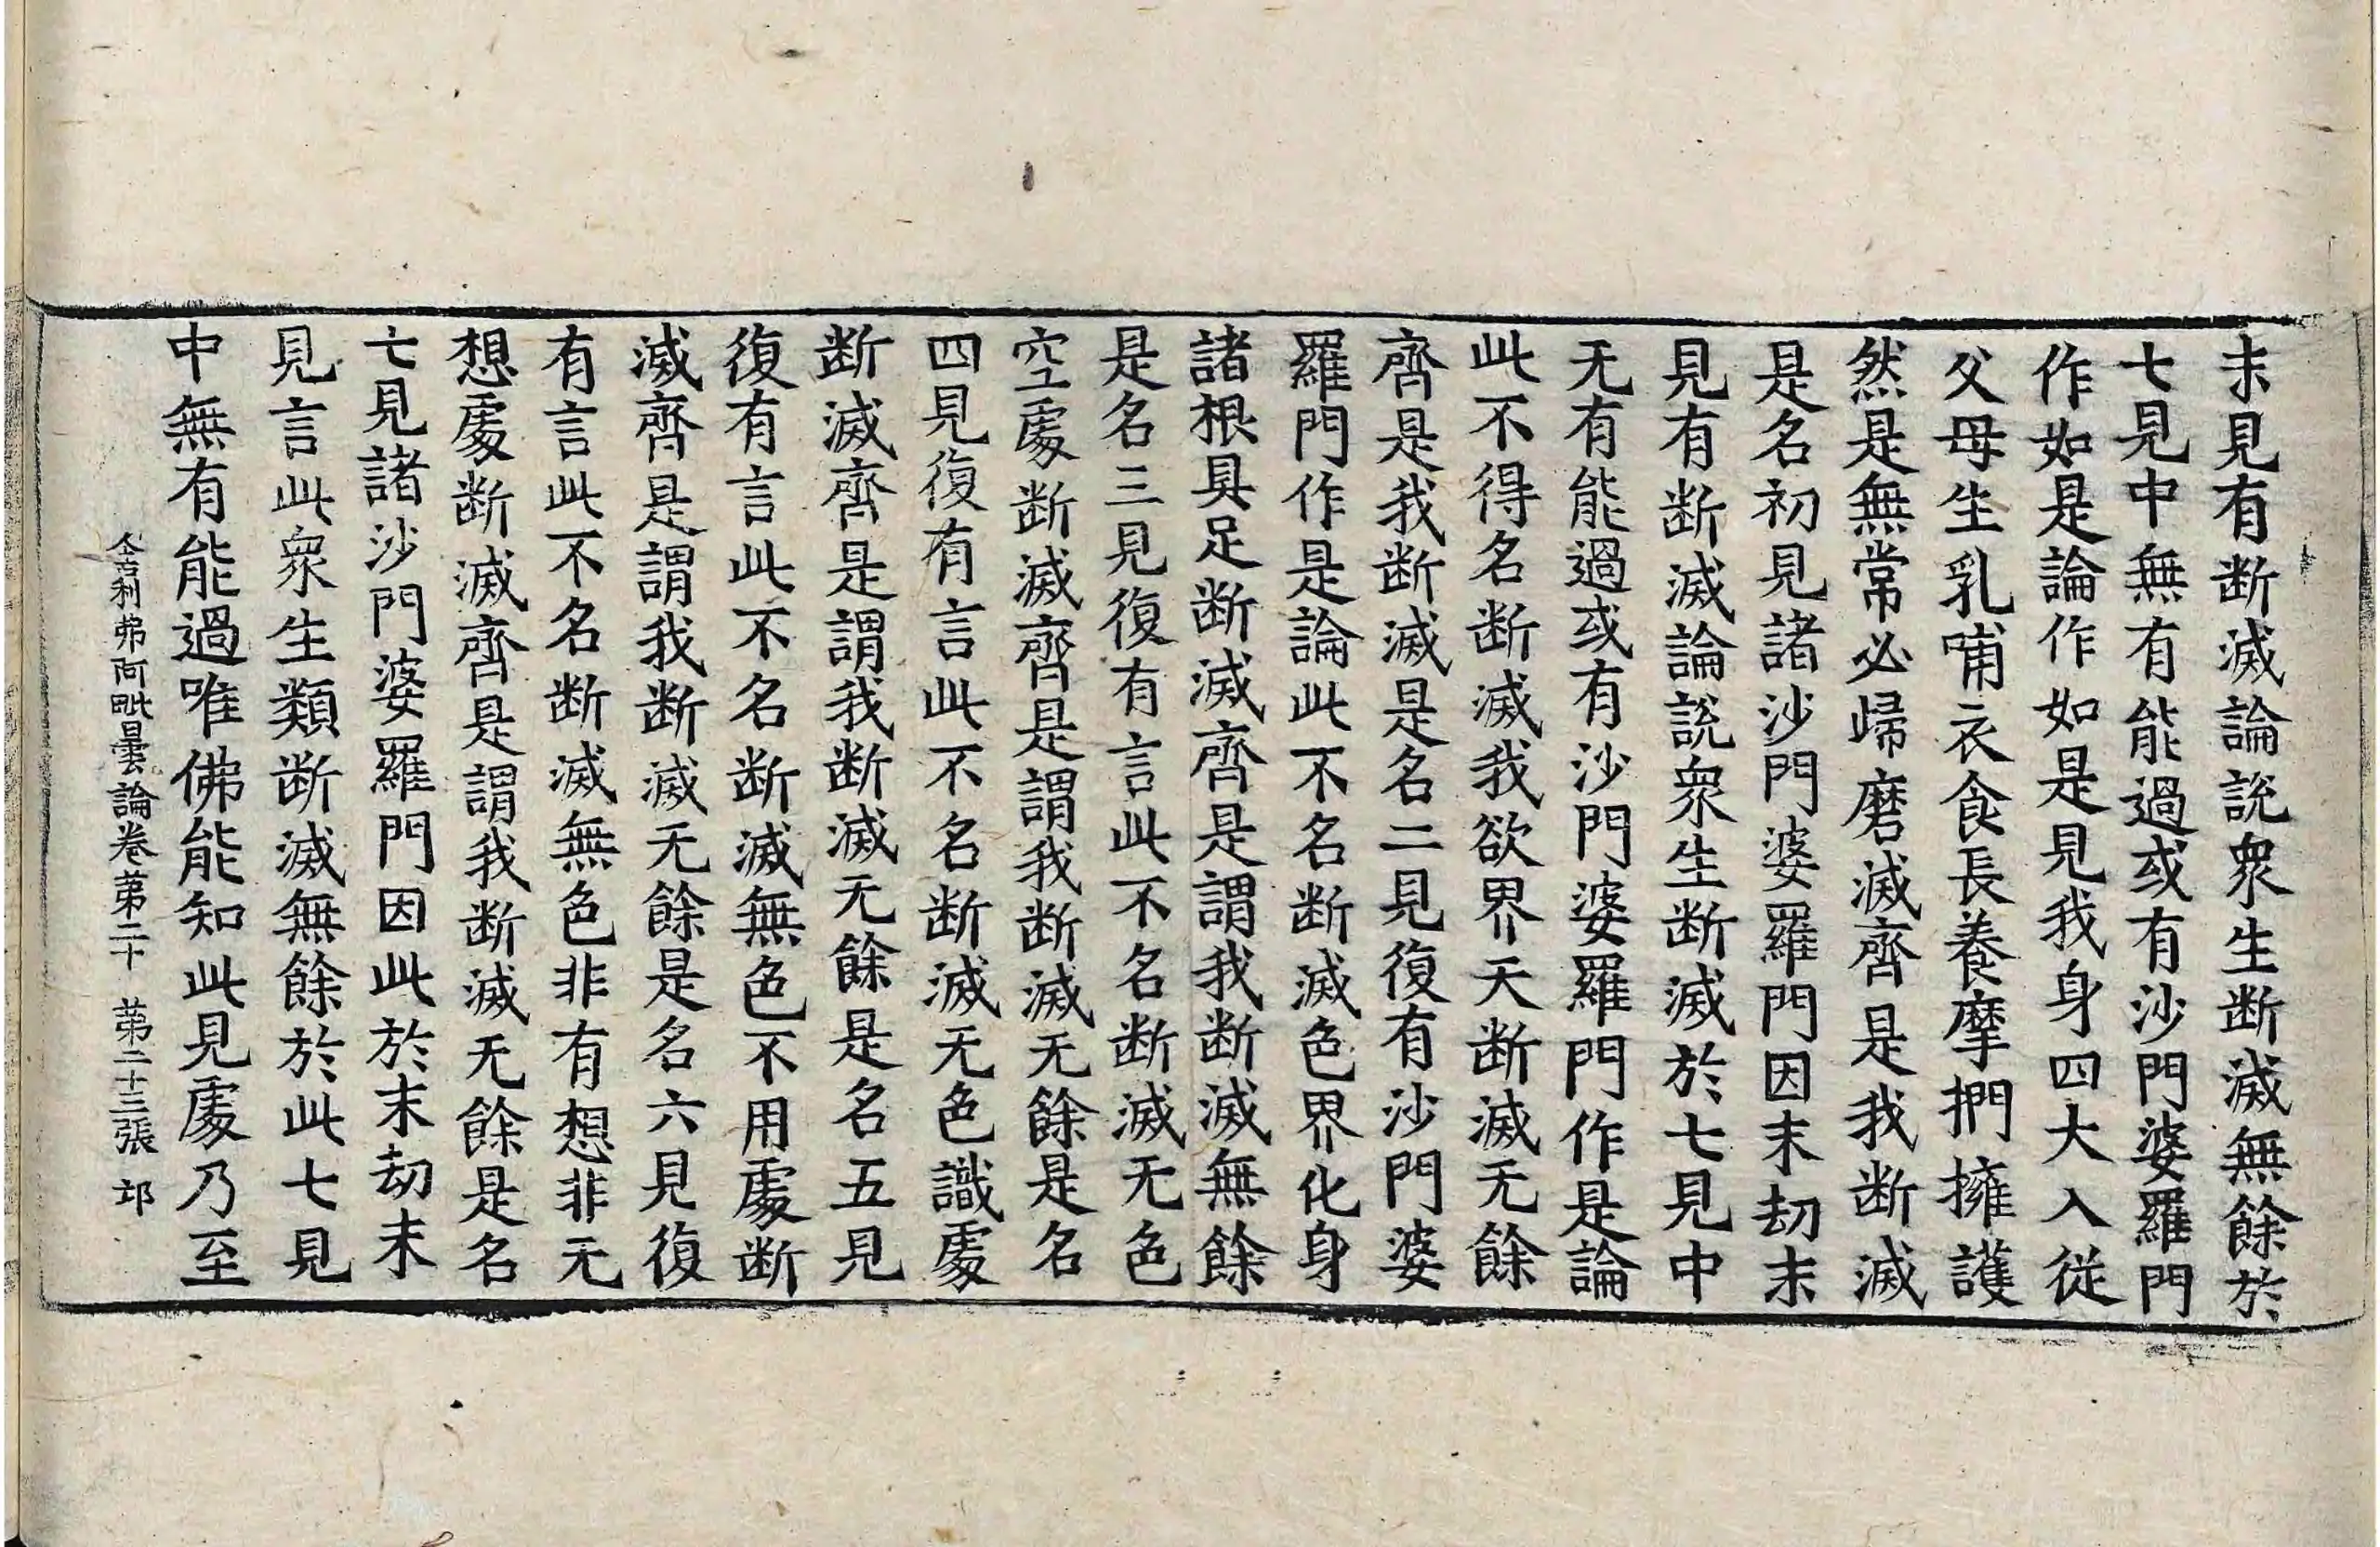 末見有断滅論說衆生断滅無餘於
七見中無有能過或有沙門婆羅門
作如是論作如是見我身四大入從
父母生乳哺衣食長養摩捫擁護
然是無常必歸磨滅齊是我断滅
是名初見諸沙門婆羅門因末劫末
見有断滅論說衆生断滅於七見中
无有能過或有沙門婆羅門作是論
此不得名断滅我欲界天断滅无餘
齊是我断滅是名二見復有沙門婆
羅門作是論此不名断滅色界化身
諸根具足断滅齊是謂我断滅無餘
是名三見復有言此不名断滅无色
空處断滅齊是謂我断滅无餘是名
四見復有言此不名断滅无色識處
断滅齊是謂我断滅无餘是名五見
復有言此不名断滅無色不用處断
滅齊是謂我断滅无餘是名六見復
有言此不名断滅無色非有想非无
想處断滅齊是謂我断滅无餘是名
七見諸沙門婆羅門因此於末劫末
見言此衆生類断滅無餘於此七見
中無有能過唯佛能知此見處乃至
舍利弗阿毗曇論卷苐二十　苐二十三張　邛